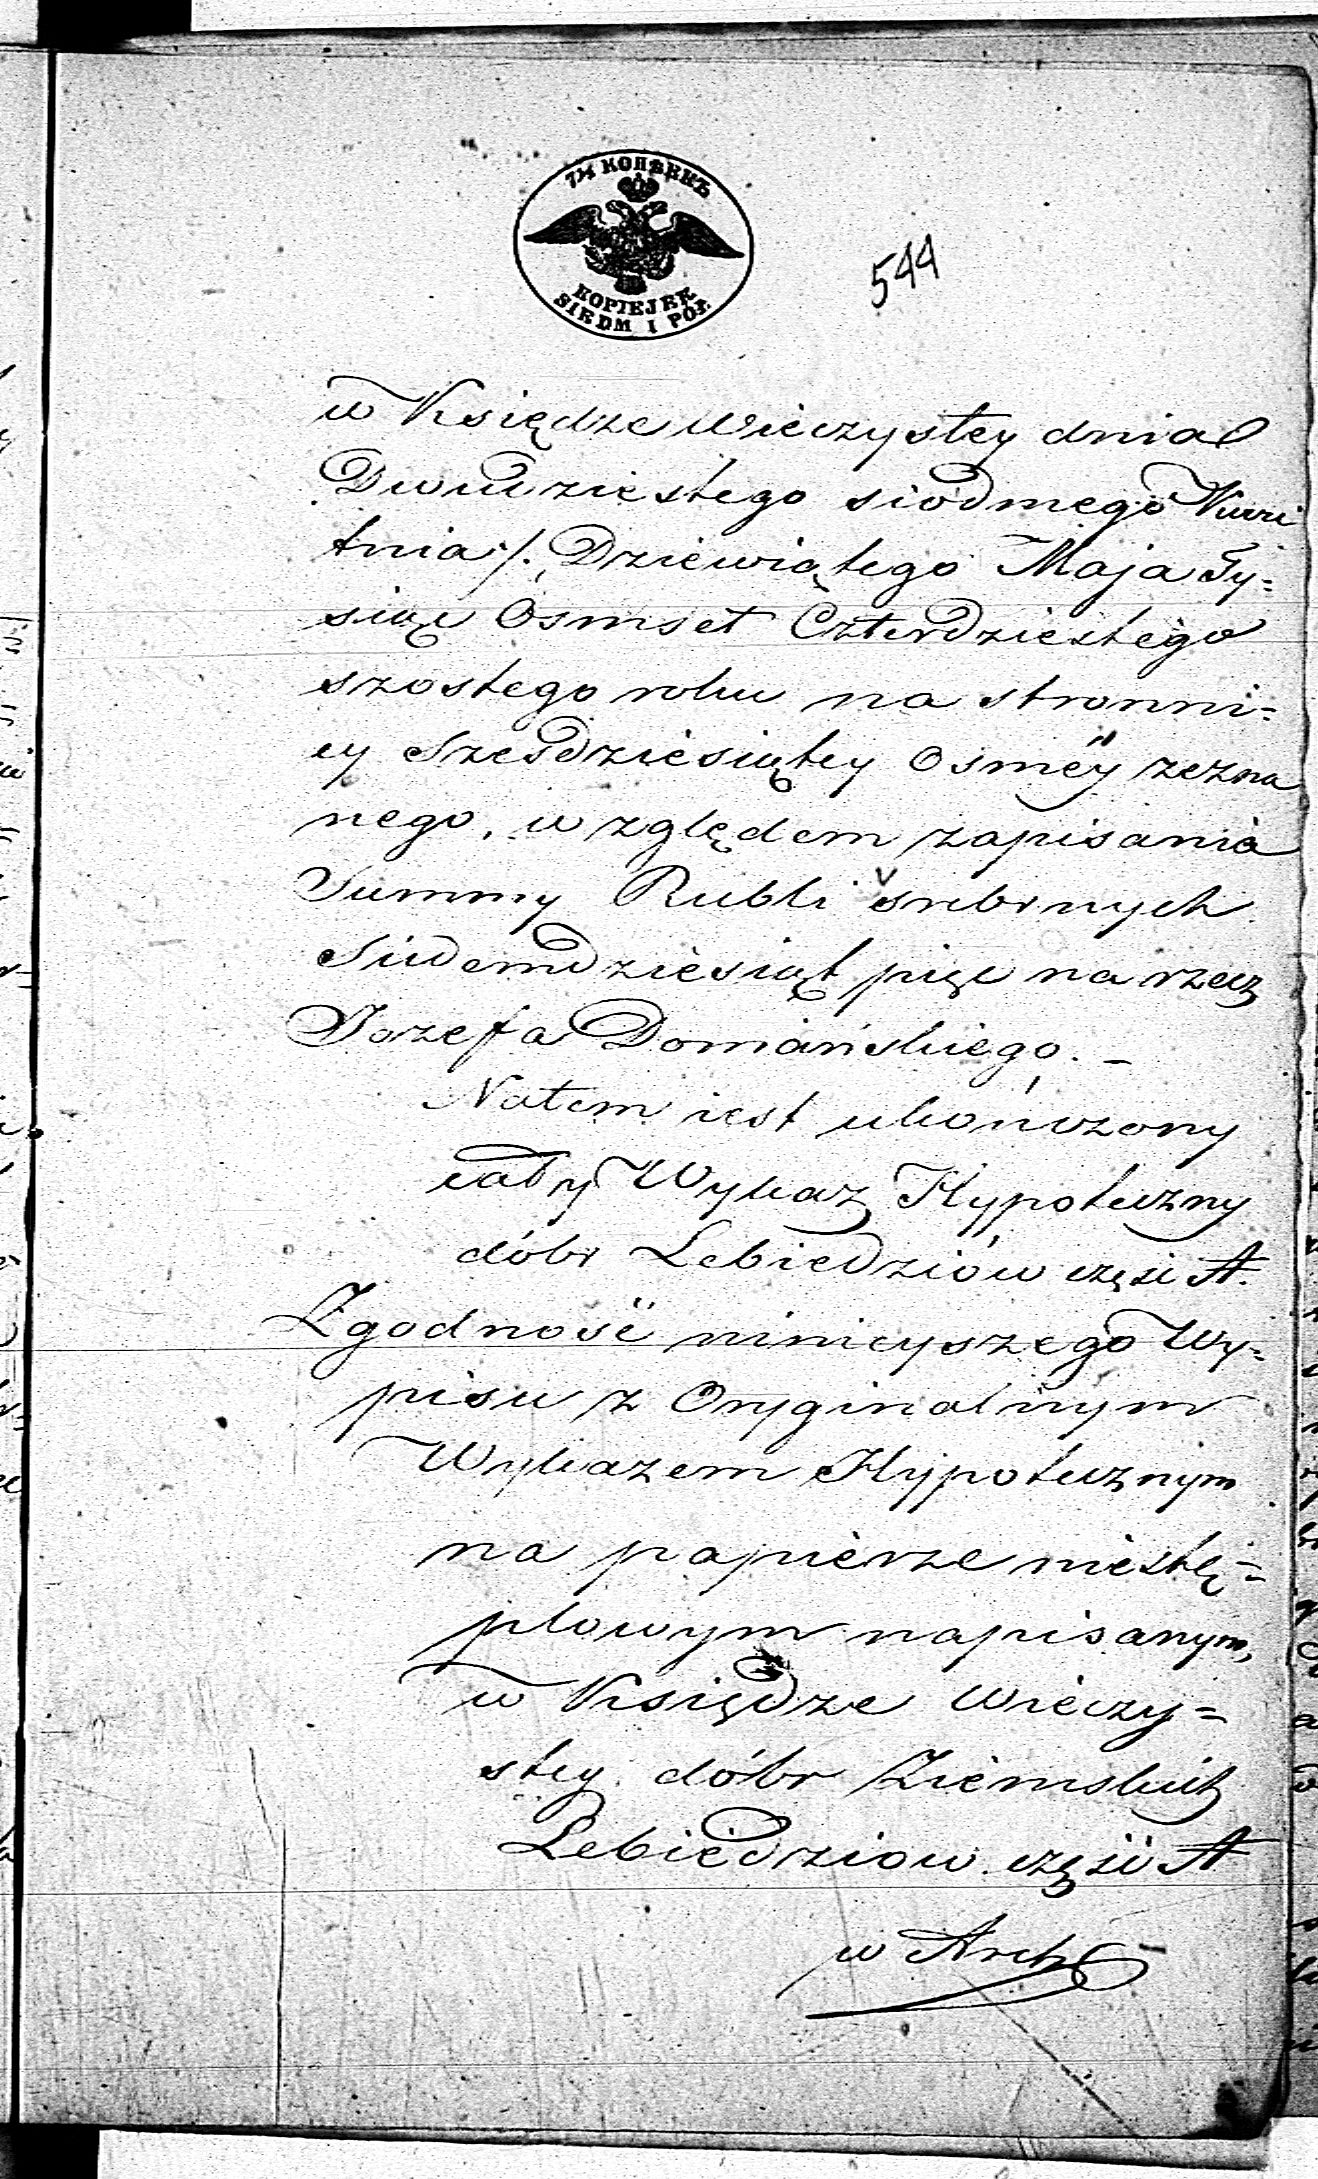 7½ КОПѢЕКЪ
KOPIEJEK
SIEDM I PÓŁ
544
w Księdze wieczystey dnia
Dwudziestego siódmego Kwie
tnia /. Dziewiątego Maja Ty=
siąc Osmset Czterdziestego
szostego roku na stronni=
cy Sześdziesiątey Osmey zezna
nego, względem zapisania
Summy Rubli śrebrnych
Siedemdziesiąt pięc na rzecz
Jozefa Domańskiego. –
Natem iest ukończony
cały Wykaz Hypoteczny
dóbr Lebiedziów częsci A.
Zgodność ninieyszego Wy=
pisu z Oryginalnym
Wykazem Hypotecznym
na papierze niestę=
plowym napisanym,
w Księdze wieczy=
stey dóbr Ziemskich
Lebiedziow częsći A
w Arch